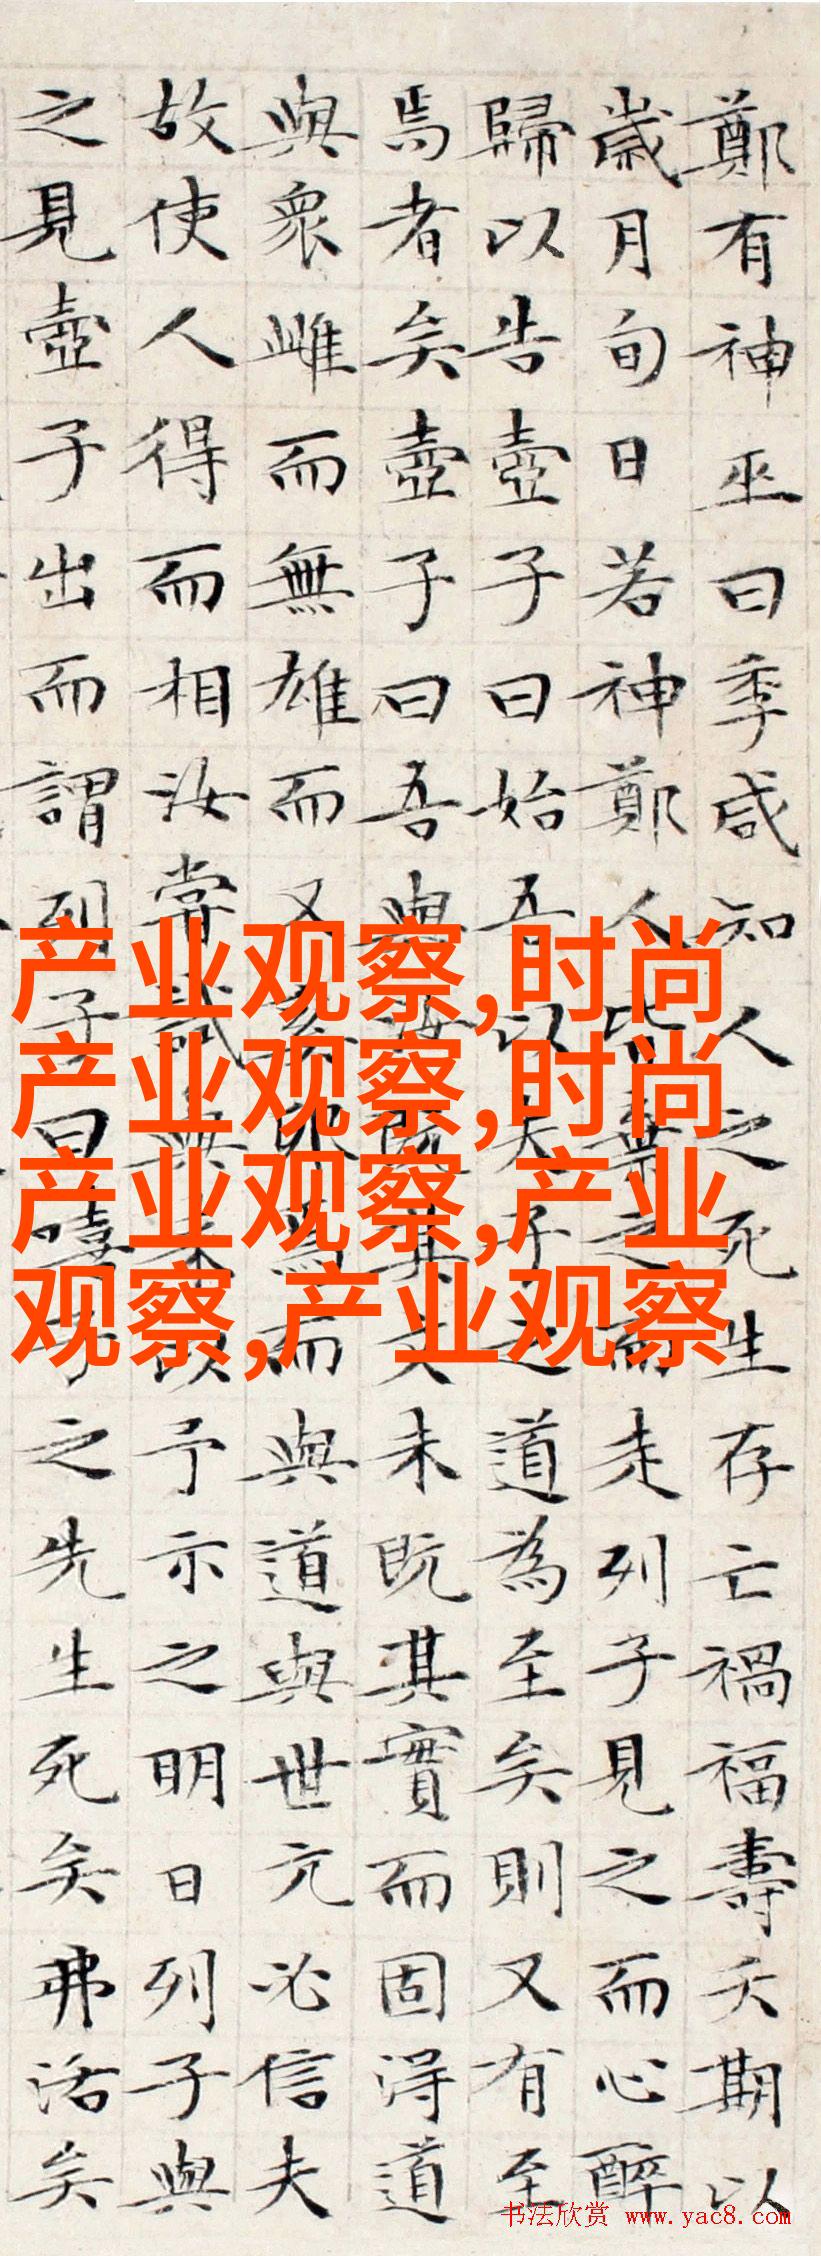 鄭有神巫曰季咸知人之死生存亡禍福壽夭期以
歲月旬日若神鄭人皆棄之而走列子見之而心醉
歸以告壺子曰始吾以夫子之道為至矣則又有至
焉者矣壺子曰吾與汝既其文未既其實而固得道
與衆雌而無雄而又奚卵焉而與道與世亢必信夫
故使人得而相汝嘗試與来以予示之明日列子與
之見壺子出而謂列子曰嘻子之先生死矣弗活矣
产业观察,时尚
产业观察,时尚
产业观察,产业
观察,产业观察
书法欣赏 www.yac8.com